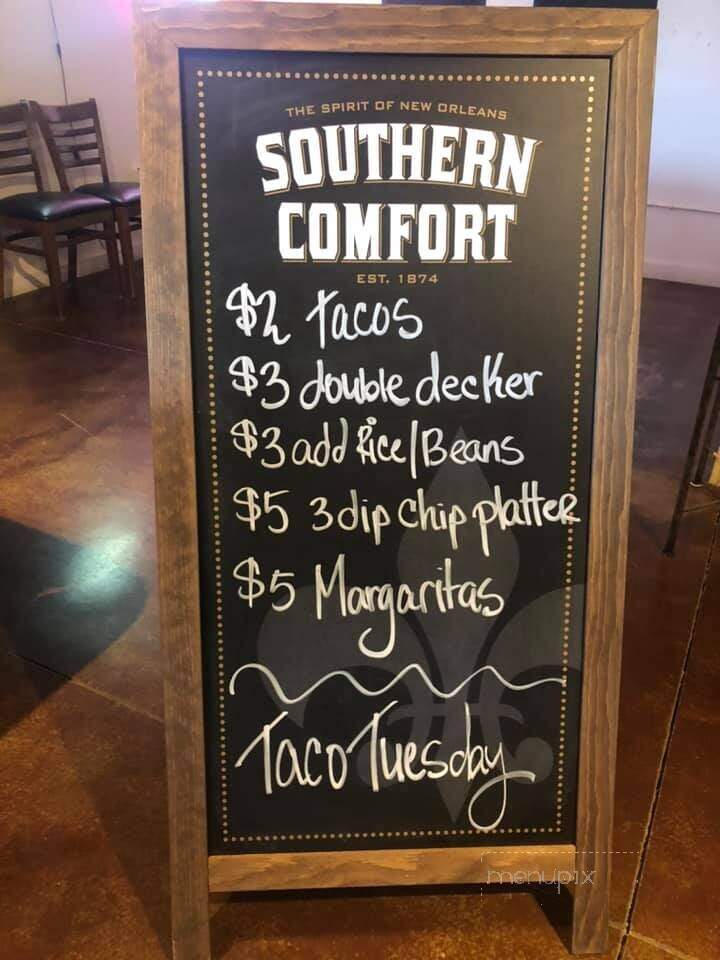 THE SPIRIT OF NEW ORLEANS
SOUTHERN
COMFORT
EST. 1874
$2 Tacos
$3 double decker
$3 add Rice/Beans
$5 3 dip chip platter
$5 Margaritas
Taco Tuesday
menupix